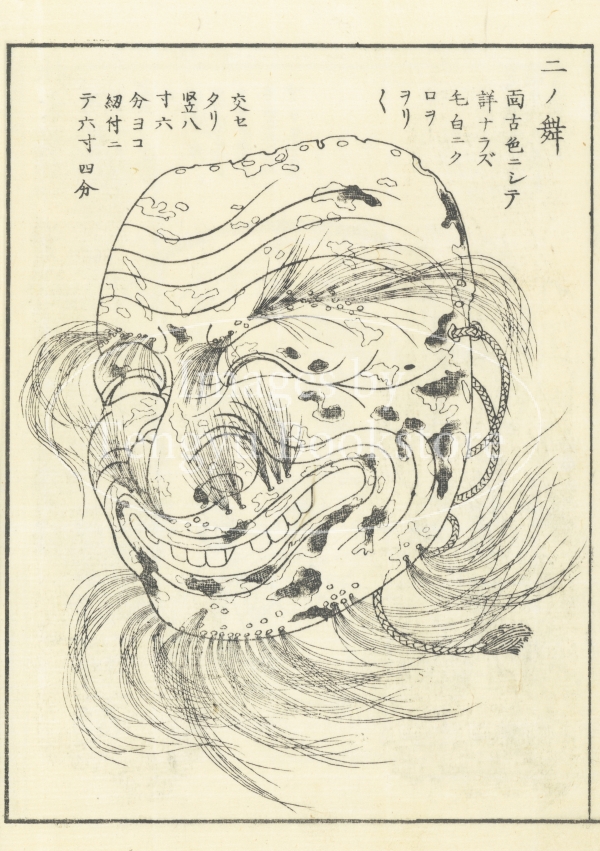 二ノ舞
面古色ニシテ
詳ナラズ
毛白ニク
ロヲ
ヲリ
〱
交セ
タリ
竪八
寸六
分ヨコ
紐付ニ
テ六寸四分
Images by
Tenayd Bookmore